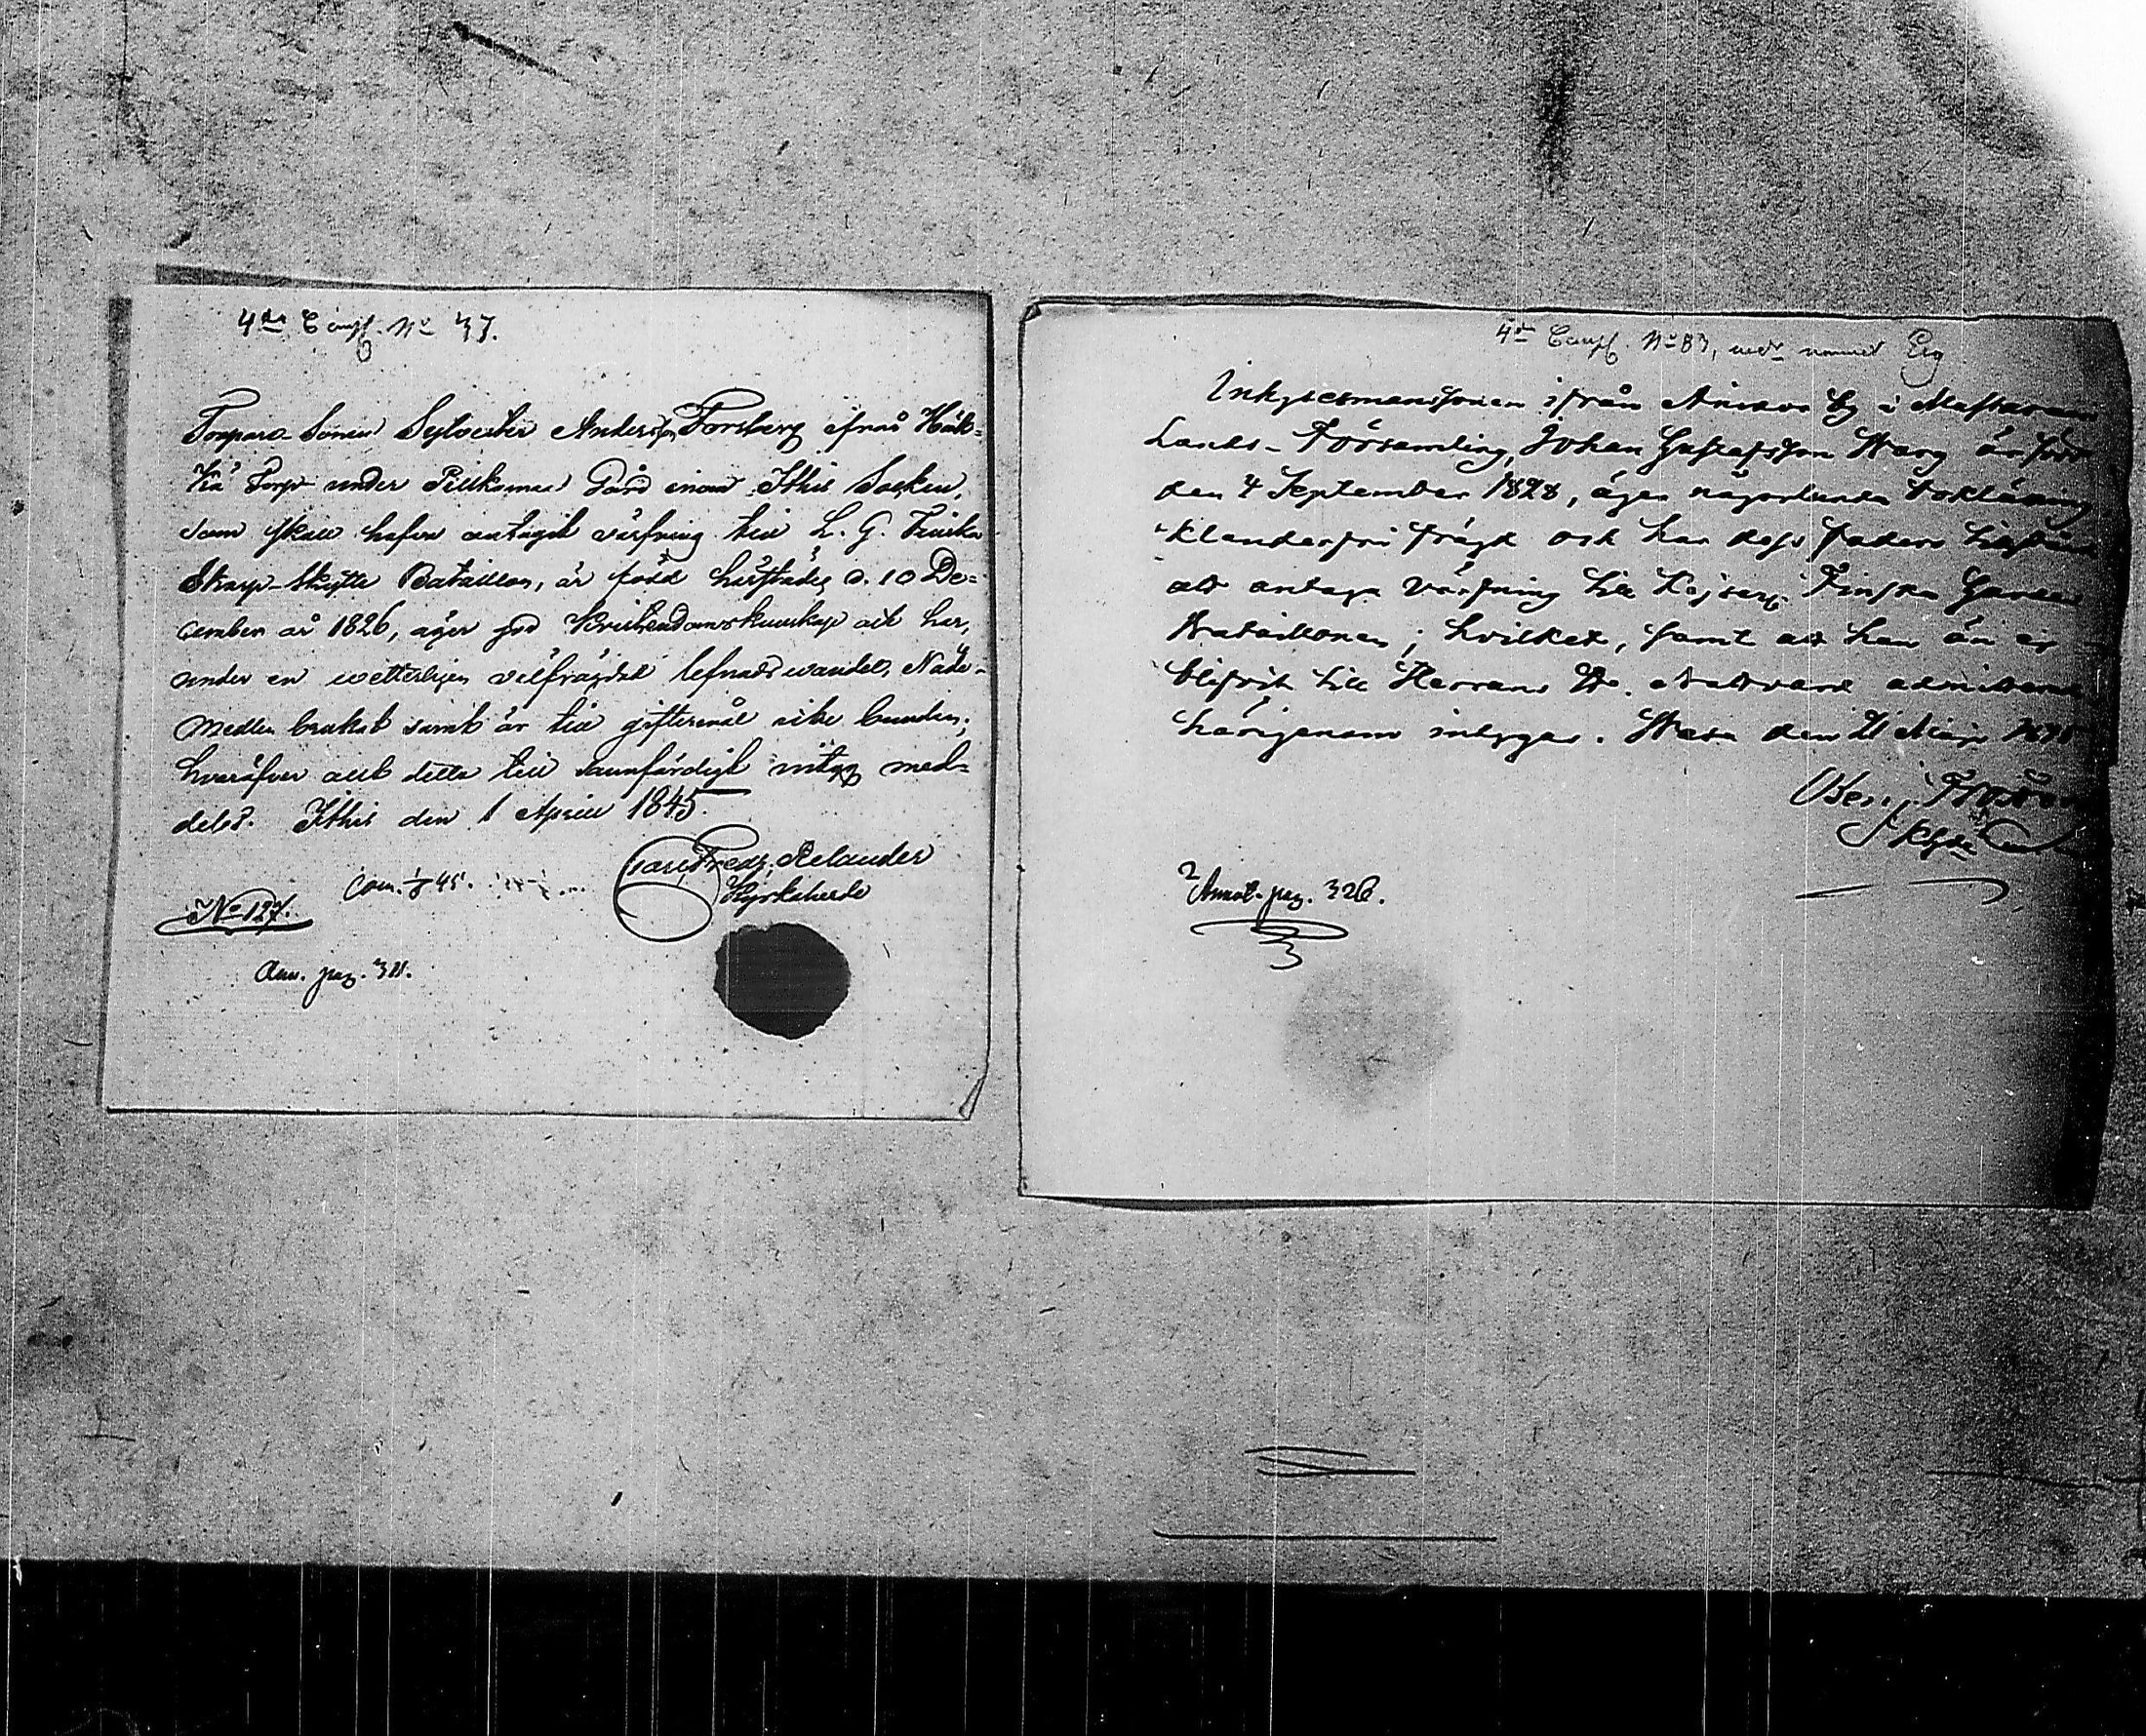 4de Comp. No 37.
Torpare-Sonen Sylvester Andersson Forsberg ifrån Häk-
kiä Torp under Pilkamaa Gård inom Ithis Socken,
som skall hafva antagit värfning till L. G. Finska
Skarp-Skytte Bataillon, är född härstädes d. 10 De-
cember år 1826, äger god Kristendomskunskap och har,
under en wetterligen välfrägdad lefnadswandel, Nåde-
medlen brukat samt är till giftermål icke bunden;
hvaröfver allt detta till sannfärdigt intyg med-
delas. Ithis den 1 April 1845.
Carl Fredr. Relander
Kyrkoherde
No 127.
Com. 45.
Ann. pag. 311.
4de Comp. No 83, med namnet Eg
Inhysesmanssonen ifrån By i Mustasaari
Lands-Församling, Johan Gustafsson Warg är född
den 4 September 1828, äger någorlunda
klanderfri frägd och har dess faders tillstånd
att antaga värfning till Kejserl. Finska Gardes
Bataillonen; hvilket, samt att han än ej
blifvit till Herrans H. Nattvard admitterad
härigenom intygas. Wasa den 21 Maji 1845
Benj.
Annot. pag. 326.